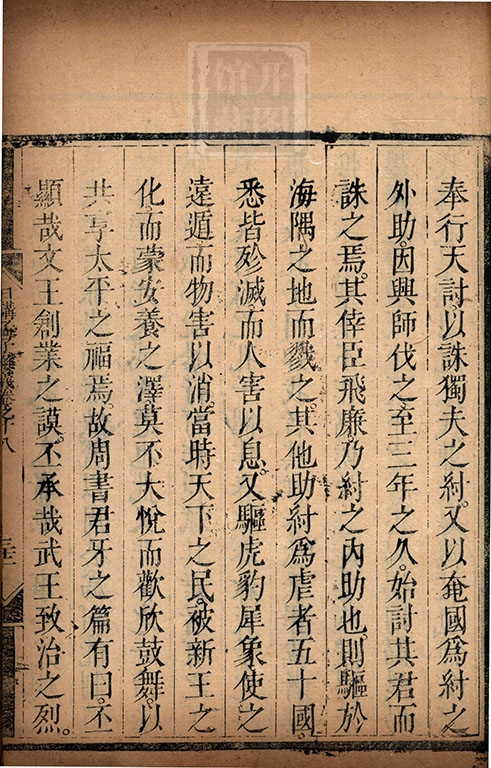 奉行天討以誅獨夫之紂又以奄國爲紂之
外助。因興師伐之至三年之久。始討其君而
誅之焉。其倖臣飛廉乃紂之內助也。則驅於
海隅之地而戮之。其他助紂爲虐者五十國。
悉皆殄滅而人害以息。又驅虎豹犀象使之
遠遁而物害以消。當時天下之民。被新王之
化而蒙安養之澤莫不大悅而歡欣鼓舞。以
共享太平之福焉。故周書君牙之篇有曰。丕
顯哉文王創業之謨。丕承哉武王致治之烈。
日講四書解義卷之十八
三十一